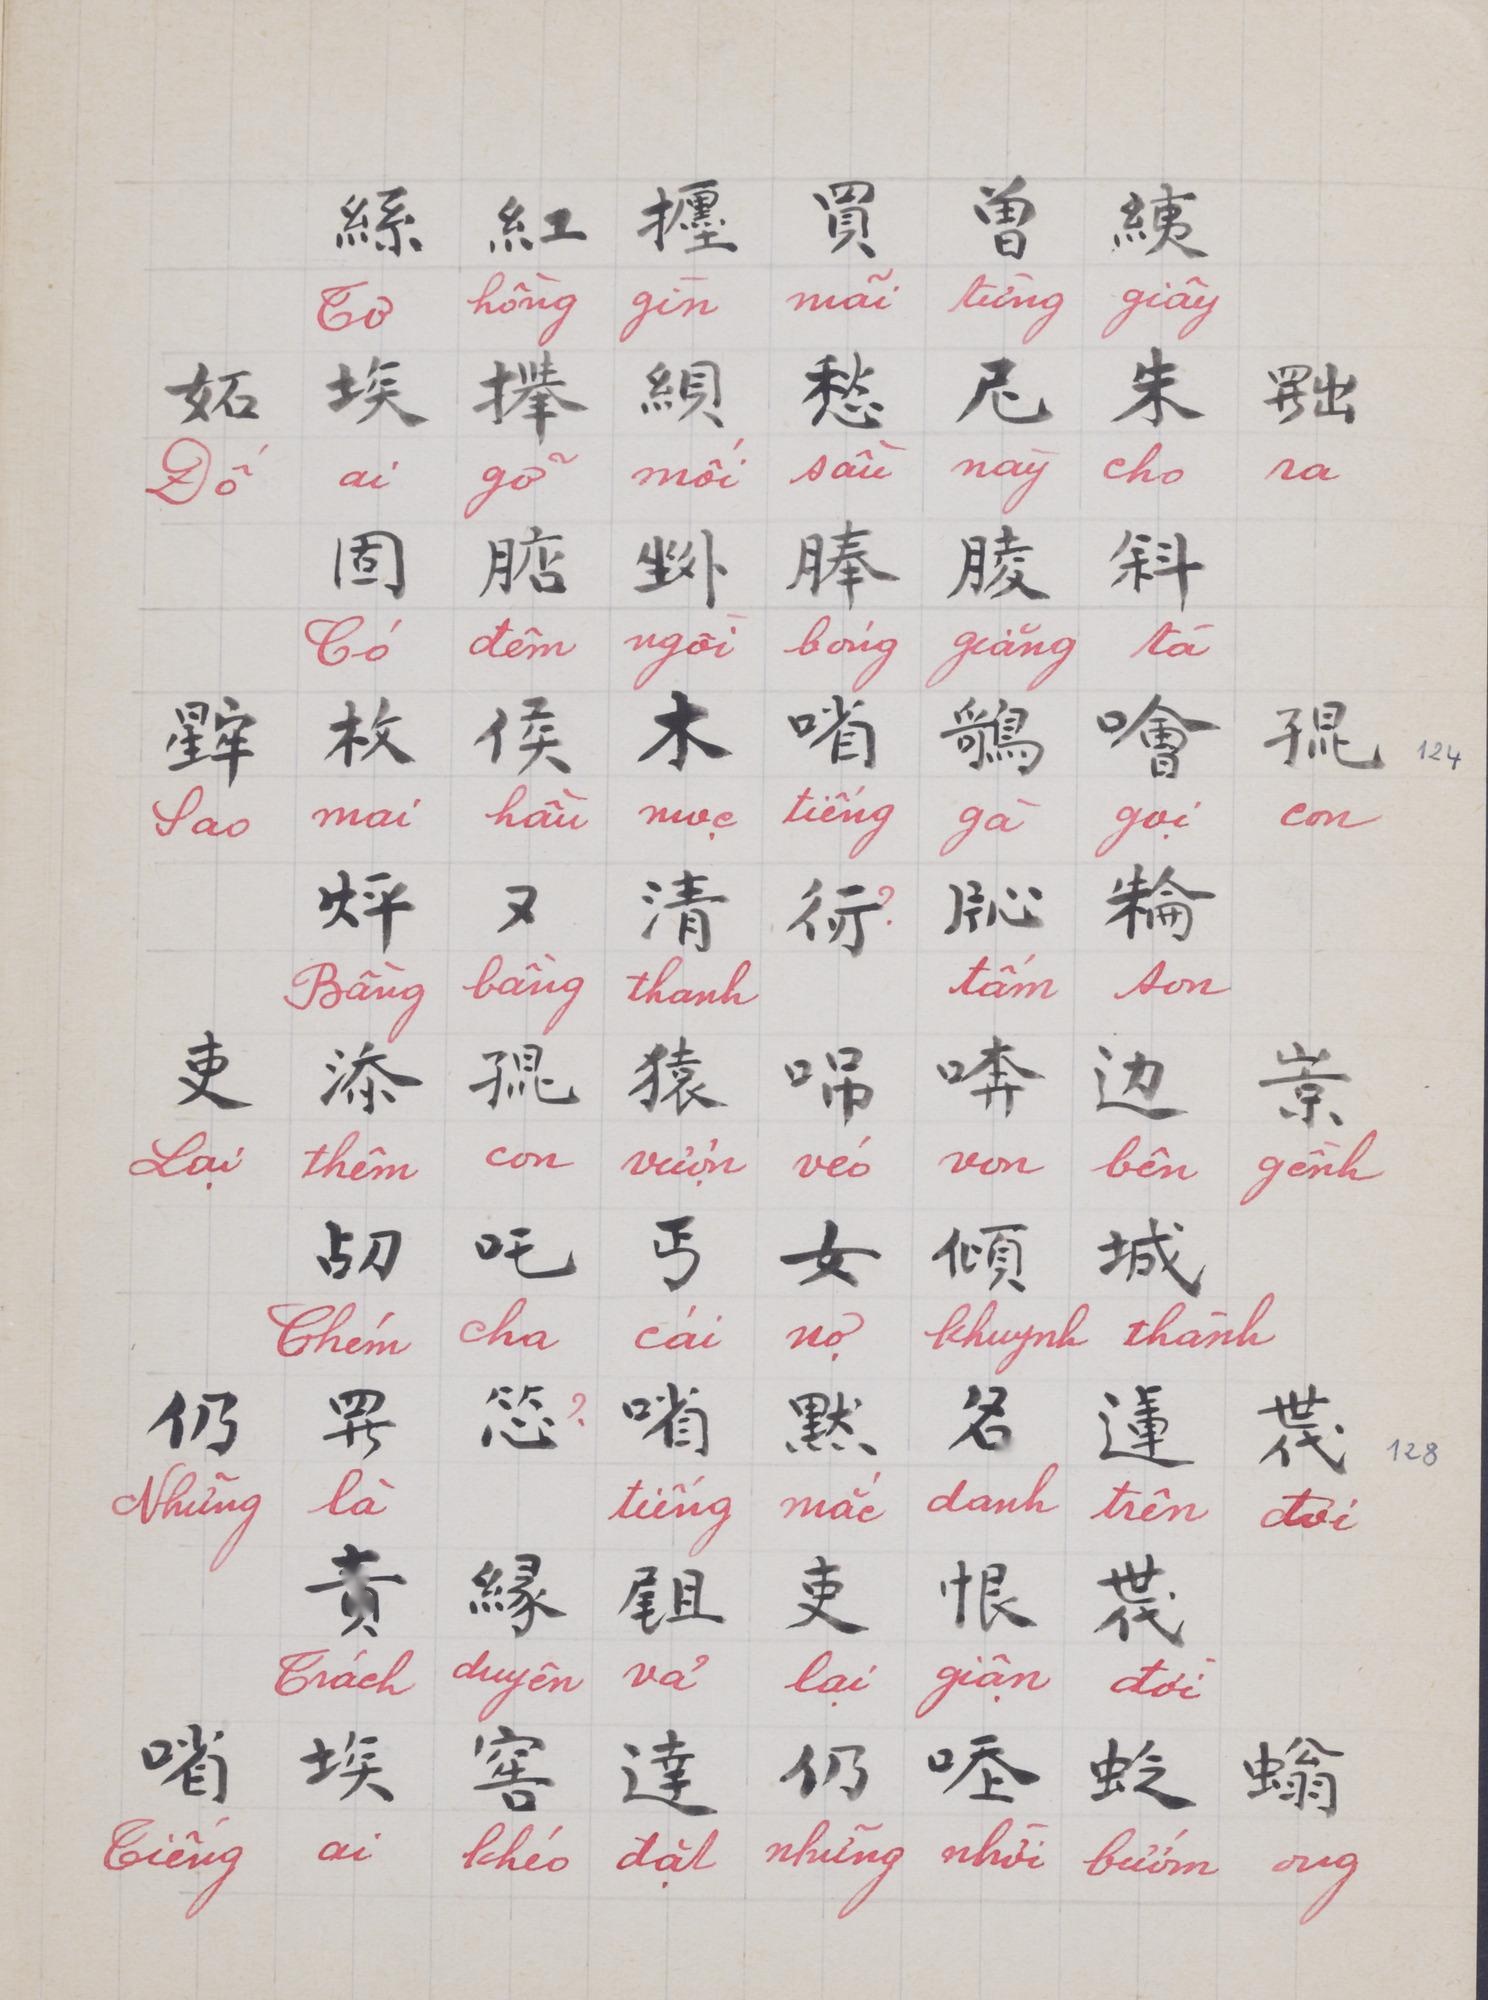 絲 紅 𢬱 買 曾 𦀊
Tơ hồng gìn mãi từng giây
妬 埃 㩮 䋦 愁 尼 朱 𦋦
Đố ai gỡ mối sầu nầy cho ra
固 𣎀 𡎥 𦜞 𦝄 斜
Có đêm ngồi bóng giăng tà
𣋀 枚 侯 木 㗂 𪃴 噲 𡥵 124
Sao mai hầu mọc tiếng gà gọi con
又 清 ?
Bâng bâng thanh tấm son
吏 添 𡥵 猿 边
Lại thêm con vượn véo von bên gềnh
吒 丐 女 傾 城
Chém cha cái nợ khuynh thành
仍 𦋦 ? 㗂 默 名 𨕭 𠁀 128
Những là tiếng mắc danh trên đời
責 緣 𡲤 吏 恨 𠁀
Trách duyên vả lại giận đời
㗂 埃 窖 達 仍 螉
Tiếng ai khéo đặt những nhời bướm ong